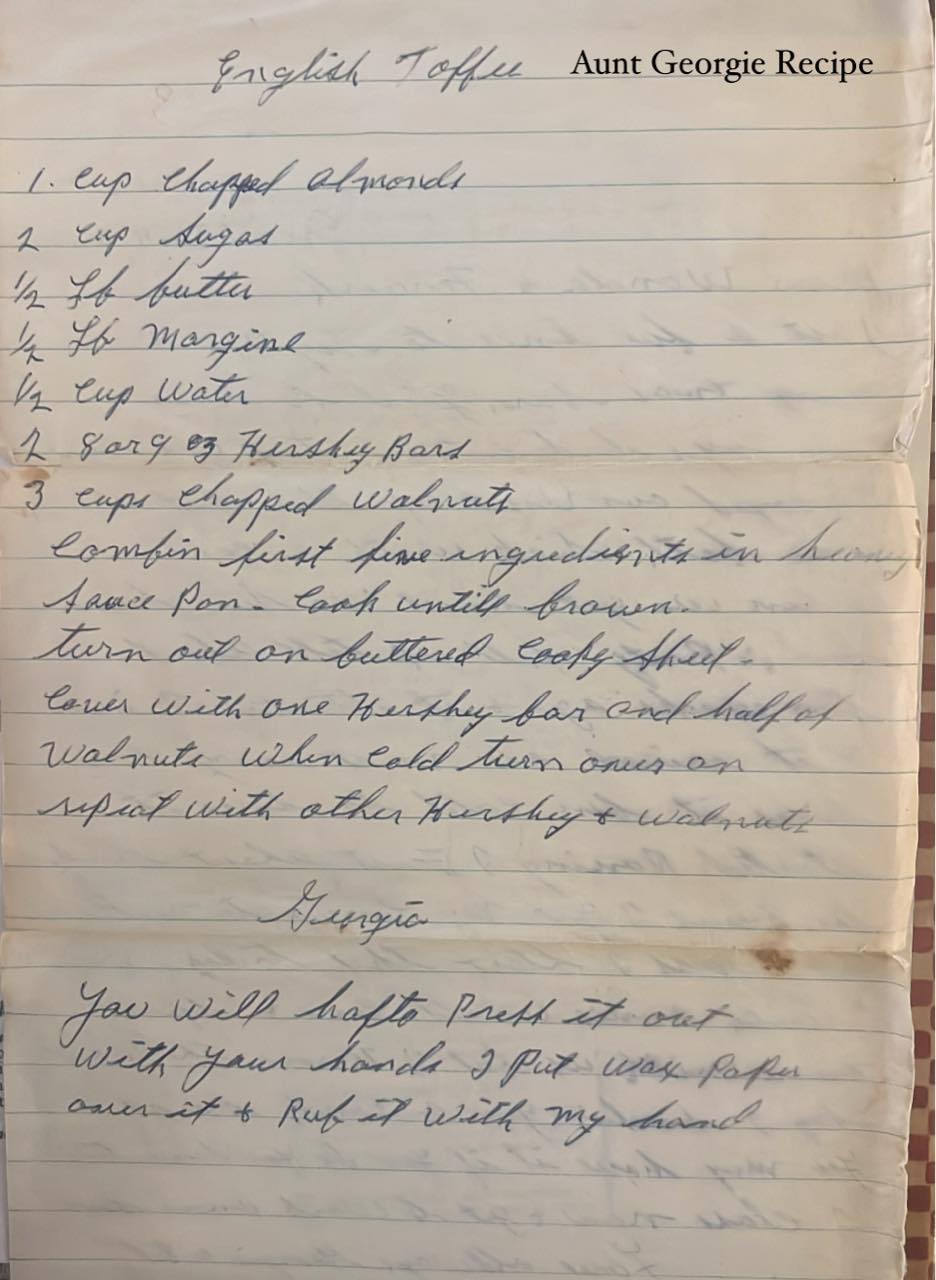 English Toffee Aunt Georgie Recipe
1. Cup Chapped Almonds
2 Cup Sugar
1/2 Lb butter
1/2 Lb Margine
1/2 Cup Water
2 8 or 9 oz Hershey Bars
3 Cups Chapped Walnuts
Combin first five ingredients in heavy
Sauce Pan. Cook untill brown.
turn out on buttered Cooky Sheet.
Cover With one Hershey bar and half of
Walnuts When Cold turn over an
repeat With other Hershey & Walnuts
Georgia
You Will hafto Press it out
With your hands I Put wax Paper
over it & Rub it With my hand